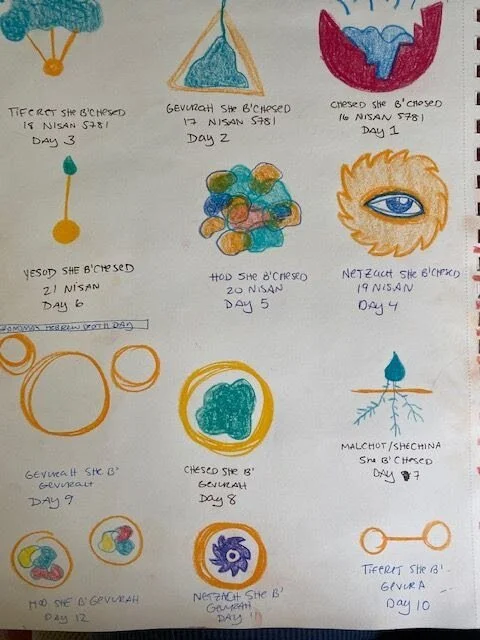 TIFERET SHE B'CHESED
18 NISAN 5781
DAY 3
GEVURAH SHE B'CHESED
17 NISAN 5781
DAY 2
CHESED SHE B'CHESED
16 NISAN 5781
DAY 1
YESOD SHE B'CHESED
21 NISAN
DAY 6
HOD SHE B'CHESED
20 NISAN
DAY 5
NETZACH SHE B'CHESED
19 NISAN
DAY 4
HEBREW DEATH DAY
GEVURAH SHE B'
GEVURAH
DAY 9
CHESED SHE B'
GEVURAH
DAY 8
MALCHOT/SHECHINA
SHE B'CHESED
DAY 7
HOD SHE B'GEVURAH
DAY 12
NETZACH SHE B'
GEVURAH
DAY 11
TIFERET SHE B'
GEVURA
DAY 10